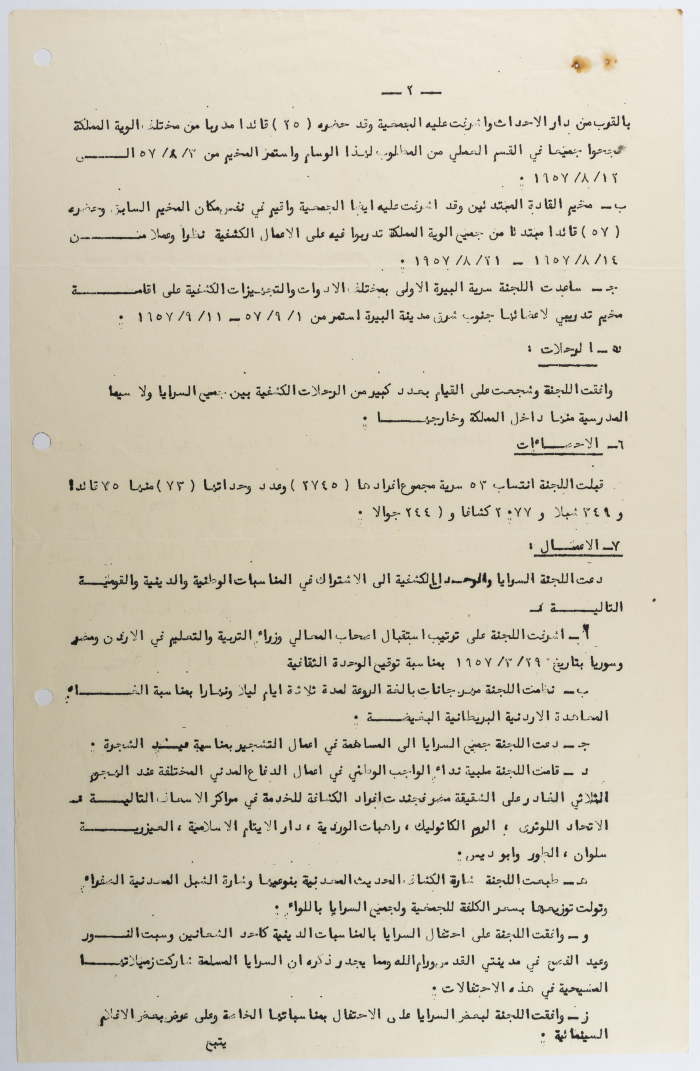 — ٢ —
بالقرب من دار الاحداث واشرفت عليه الجمعية وقد حضره ( ٢٥ ) قائدا مدربا من مختلف الوية المملكة
نجحوا جميعا في القسم العملي من المطلوب لهذا الوسام واستمر المخيم من ٣/ ٨/ ٥٧ الــى
١٢/ ٨/ ١٦٥٧ :
ب ـ مخيم القادة المبتدئين وقد اشرفت عليه ايضا الجمعية واقيم في نفس مكان المخيم السابق وحضره
( ٥٧ ) قائدا مبتدئا من جميع الوية المملكة تدربوا فيه على الاعمال الكشفية نظرا وعملا مــن
١٤/ ٨/ ١٦٥٧ ــ ٢١/ ٨/ ١٩٥٧ :
جـ ـ ساعدت اللجنة سرية البيرة الاولى بمختلف الادوات والتجهيزات الكشفية على اقامــة
مخيم تدريبي لاعضائها جنوب شرق مدينة البيرة استمر من ١/ ٩/ ٥٧ ــ ١١/ ٩/ ١٦٥٧ :
٥ ـ الرحلات :
وافقت اللجنة وشجعت على القيام بعدد كبير من الرحلات الكشفية بين جميع السرايا ولا سيما
المدرسية منها داخل المملكة وخارجهــا :
٦ـ الاحصــاءات
قبلت اللجنة انتساب ٥٣ سرية مجموع افرادها ( ٢٧٤٥ ) وعدد وحداتها ( ٧٣ ) منها ٧٥ قائدا
و ٣٤٩ شبلا و ٢٠٧٧ كشافا و ( ٢٤٤ جوالا :
٧ـ الاعمــال :
دعت اللجنة السرايا الكشفية الى الاشتراك في المناسبات الوطنية والدينية والقوميــة
التاليــة :ـ
أ ـ اشرفت اللجنة على ترتيب استقبال اصحاب المعالي وزراء التربية والتعليم في الاردن ومصر
وسوريا بتاريخ ٢٩/ ٣/ ١٦٥٧ بمناسبة توقيع الوحدة الثقافية
ب ـ نظمت اللجنة مهرجانات بالغة الروعة لمدة ثلاثة ايام ليلا ونهارا بمناسبة الغــاء
المعاهدة الاردنية البريطانية البغيضــة :
جـ ـ دعت اللجنة جميع السرايا الى المساهمة في اعمال التشجير بمناسبة عيــد الشجرة :
د ـ قامت اللجنة ملبية نداء الواجب الوطني في اعمال الدفاع المدني المختلفة عند الهجوم
الثلاثي الغادر على الشقيقة مصر فجندت افراد الكشافة للخدمة في مراكز الاسعاف التاليــة :ـ
الاتحاد اللوثرى ، الروم الكاثوليك ، راهبات الوردية ، دار الايتام الاسلامية ، العيزريــة
سلوان ، الطور وابو ديس :
هـ ـ طبعت اللجنة شارة الكشاف الحديث المعدنية بنوعيها وشارة الشبل المعدنية الصفراء
وتولت توزيعها بسعر الكلفة للجمعية ولجميع السرايا باللواء :
و ـ وافقت اللجنة على احتفال السرايا بالمناسبات الدينية كاحد الشعانين وسبت النــور
وعيد الفصح في مدينتي القدس ورام الله ومما يجدر ذكره ان السرايا المسلمة شاركت زميلاتهــا
المسيحية في هذه الاحتفالات :
ز ـ وافقت اللجنة لبعض السرايا على الاحتفال بمناسباتها الخاصة وعلى عرض بعض الافلام
السينمائية :
يتبع